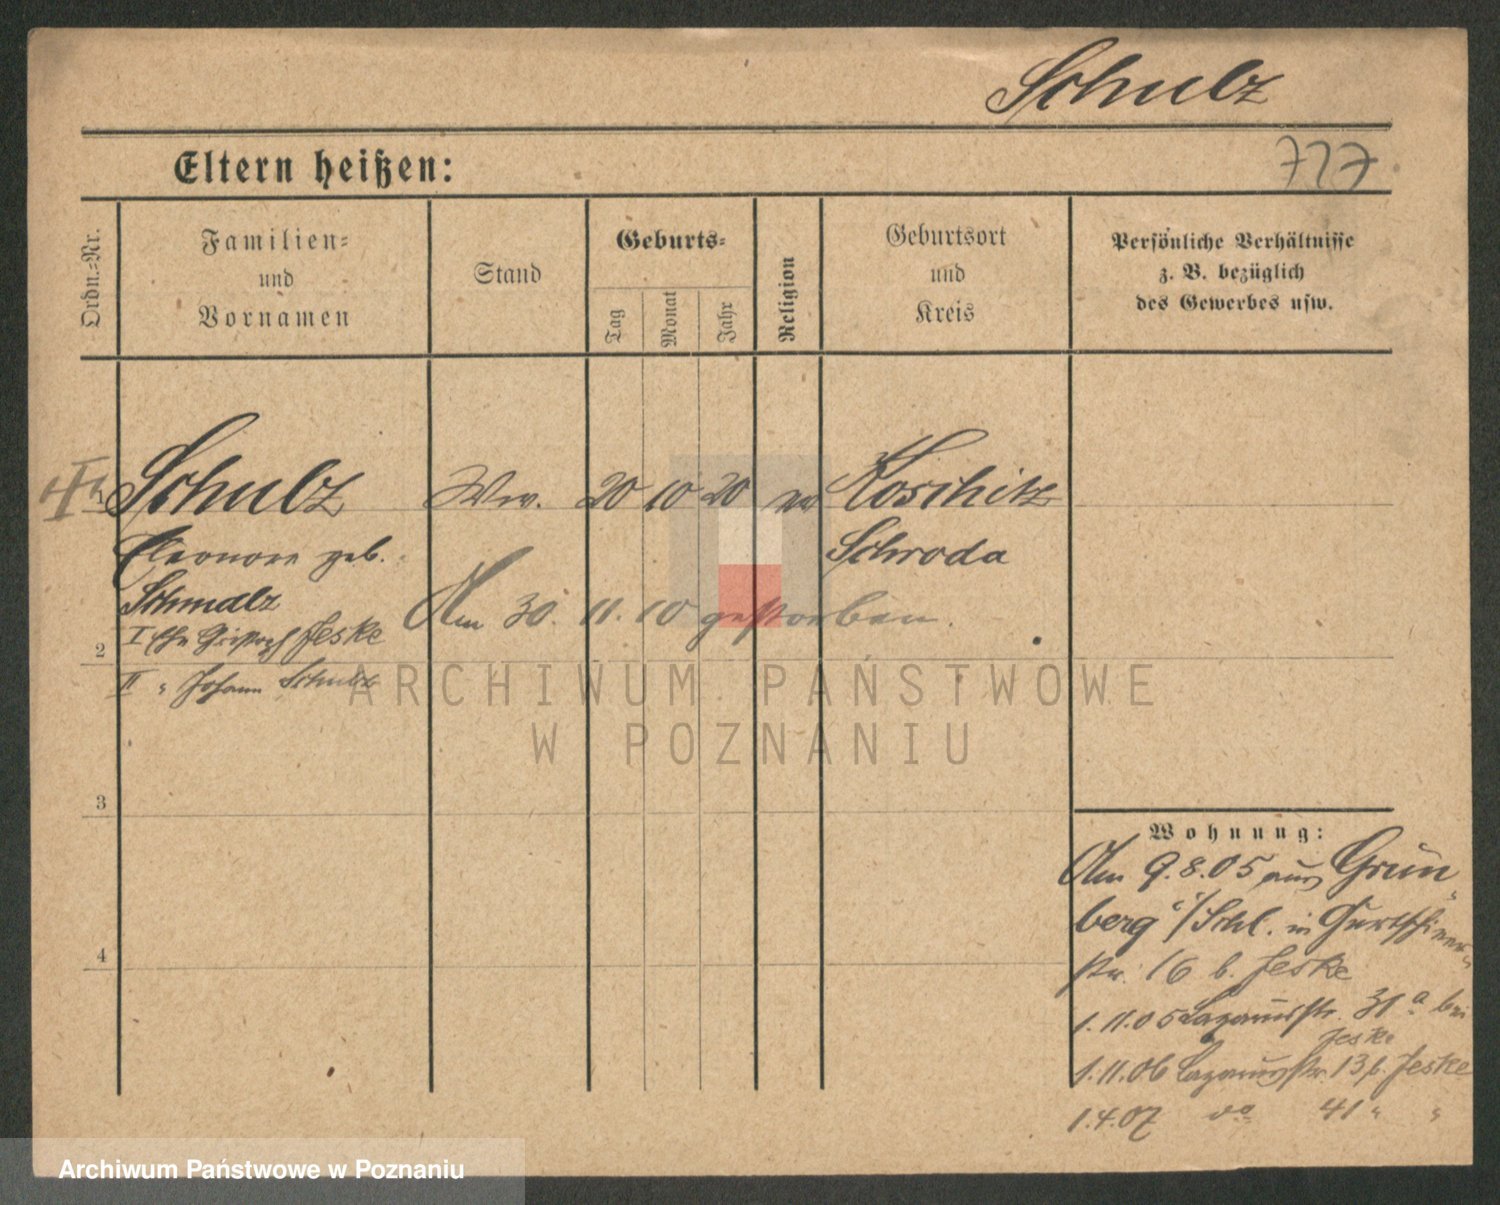 Schulz
Eltern heißen:
727
Ordn.-Nr.
Familien-
und
Vornamen
Stand
Geburts-
Tag
Monat
Jahr
Religion
Geburtsort
und
Kreis
Persönliche Verhältnisse
z. B. bezüglich
des Gewerbes usw.
1
Schulz Ww. 20 10 20 Koschitz
Eleonore geb. Schroda
Schmalz
Am 30. 11. 10 gestorben.
I Ehe Jeske
2
II " Johann Schulz
ARCHIWUM PAŃSTWOWE
W POZNANIU
3
Wohnung:
Am 9.8.05 aus Grün-
berg i/Schl. in
str. 16 b. Jeske
4
1.11.05 Lazarusstr. 31a bei
Jeske
1.11.06 Lazarusstr. 13 b. Jeske
1.4.07 do 41 " "
Archiwum Państwowe w Poznaniu